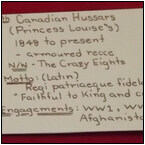 Canadian Hussars
(Princess Louise's)
1848 to present
- armoured recce
N/W - The Crazy Eights
Motto: (Latin)
Regi patriaeque fidel
"Faithful to King and c
Engagements: WW1, WW
Afghanista